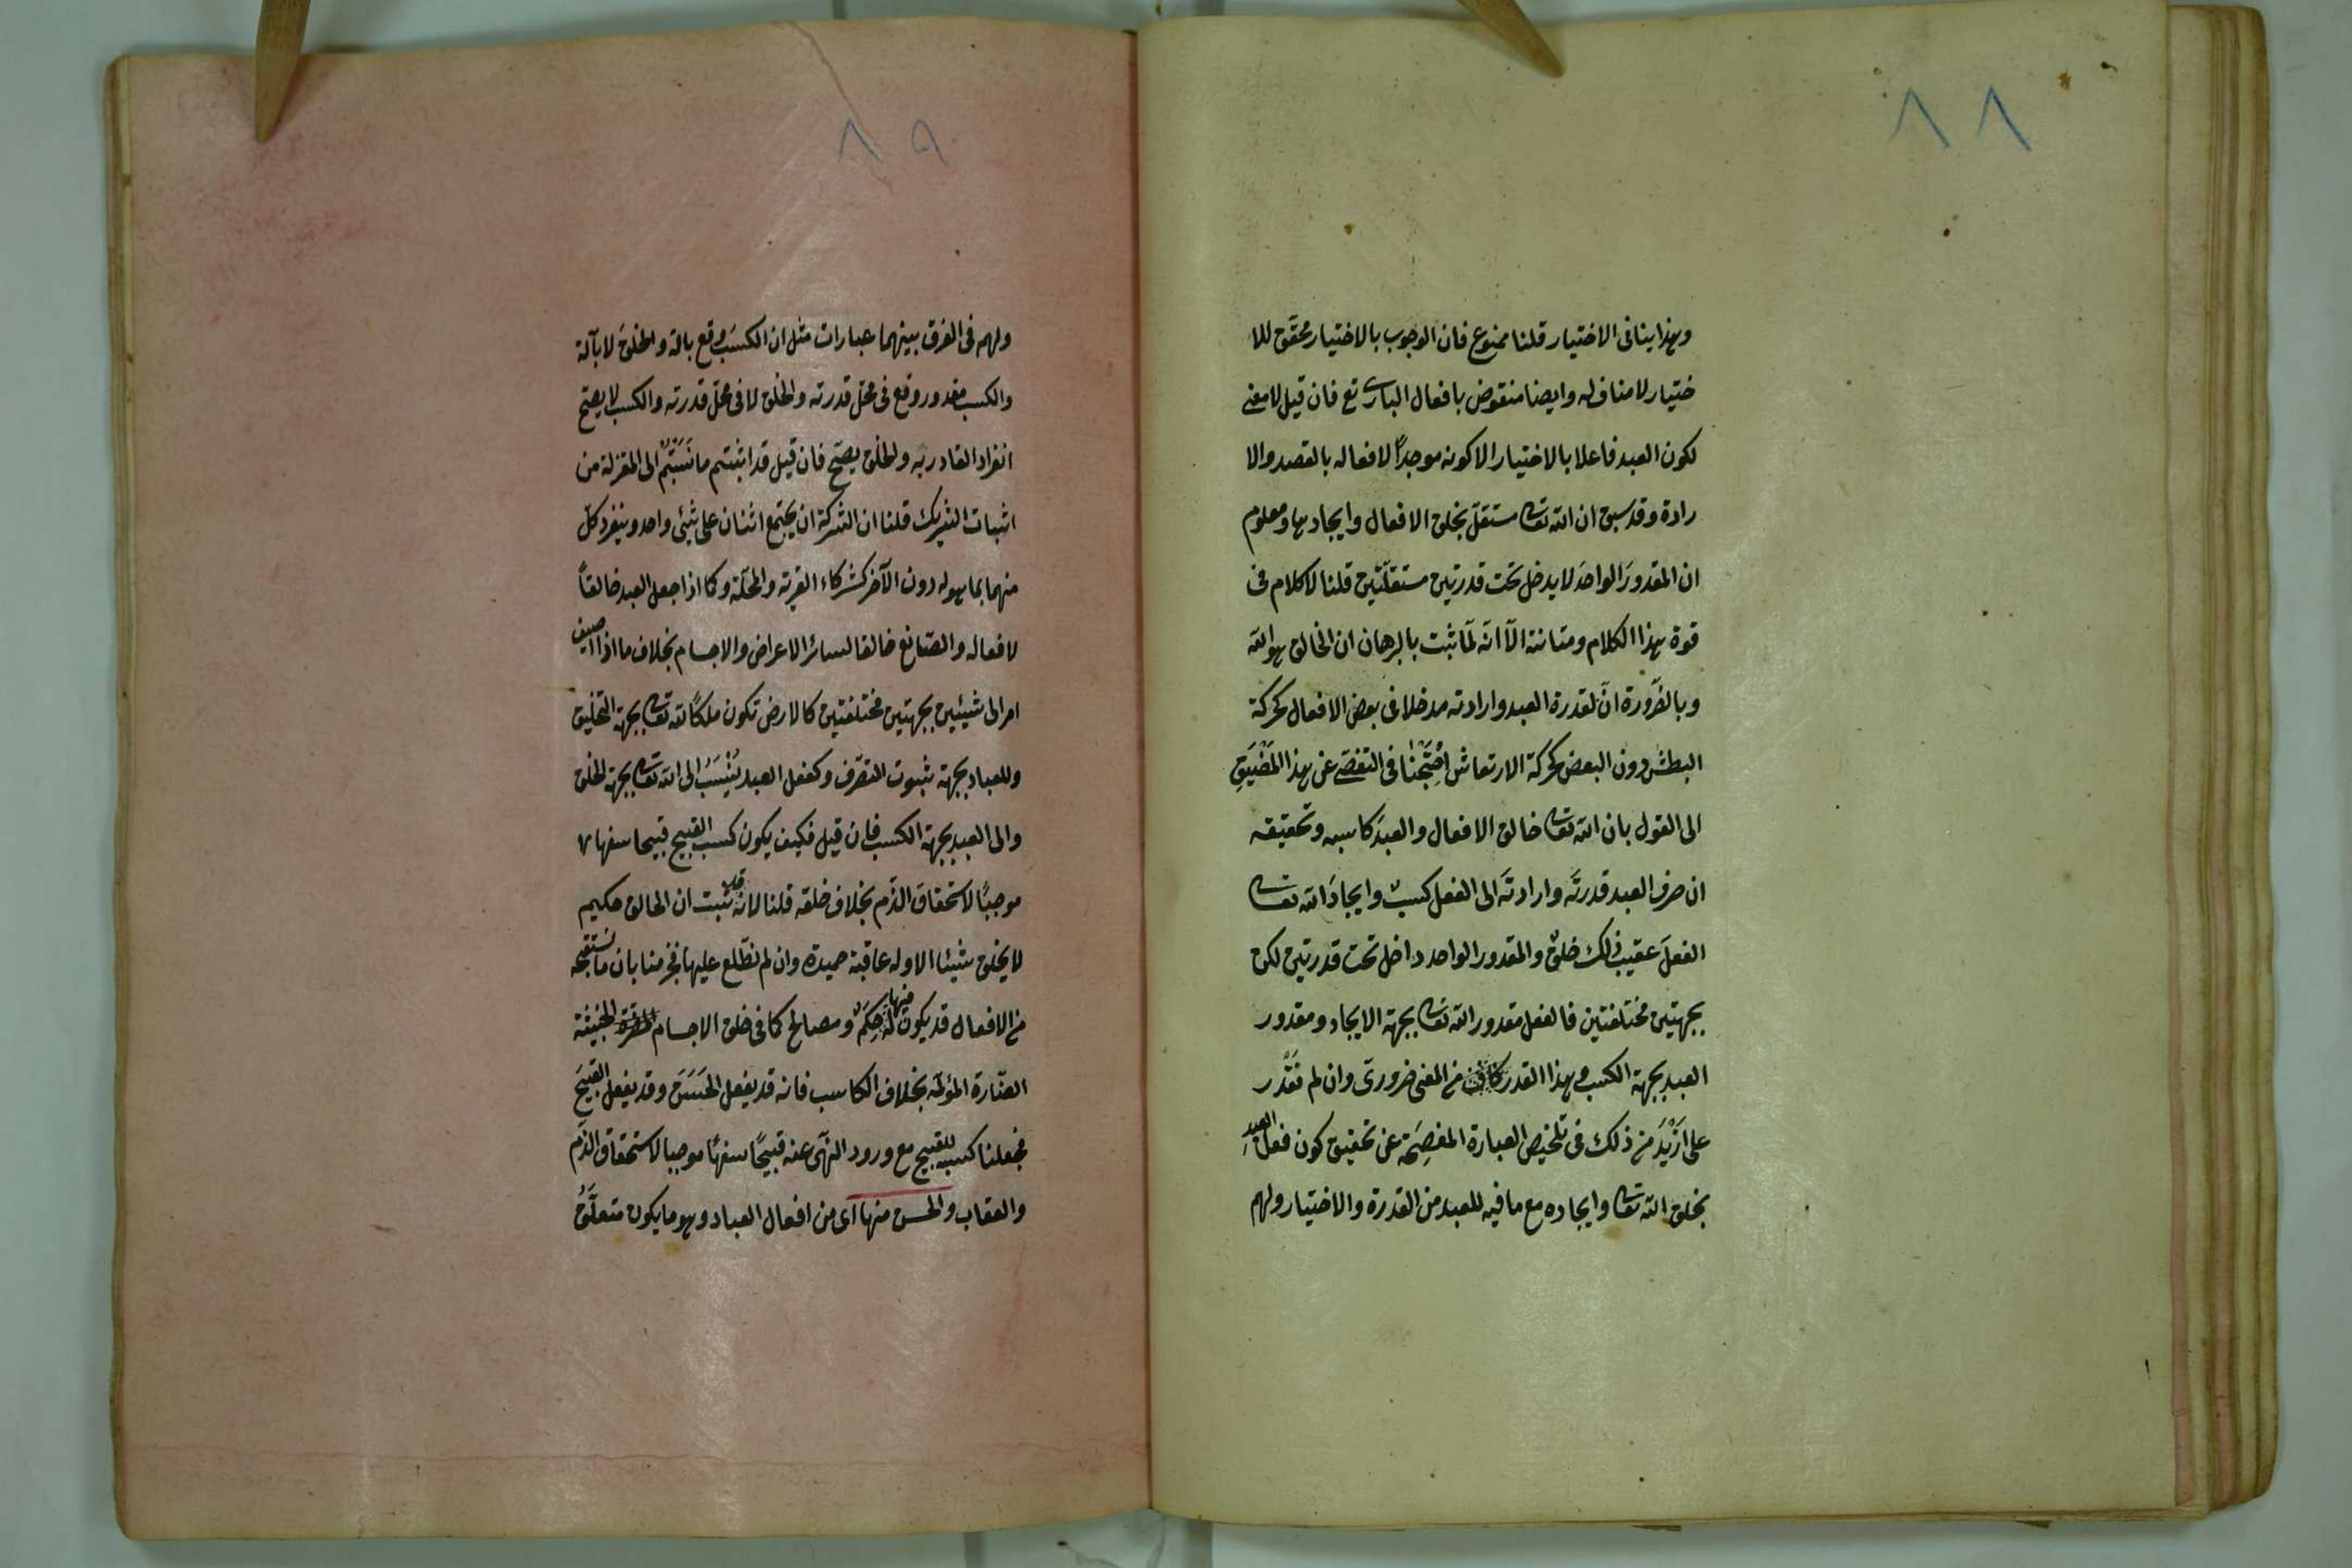 ٨٨
وهذا ينافى الاختيار قلنا ممنوع فان الوجوب بالاختيار محقّق للا
ختيار لا مناف له وايضا منقوض بافعال البارى تع فان قيل لا معنى
لكون العبد فاعلا بالاختيار الا كونه موجداً لافعاله بالقصد والا
رادة وقد سبق ان الله تعالى مستقلّ بخلق الافعال وايجادها ومعلوم
ان المقدورَ الواحدَ لا يدخل تحت قدرتين مستقلّتين قلنا لا كلام فى
قوة هذا الكلام ومتانته الّا انّه لمّا ثبت بالبرهان ان الخالق هو الله
وبالضّرورة انّ لقدرة العبد وارادته مدخلا فى بعض الافعال كحركة
البطش دون البعض كحركة الارتعاش اِحْتَجْنا فى التفصّى عن هذا المَضْيَقِ
الى القول بان الله تعالى خالق الافعال والعبدَ كاسبه وتحقيقه
ان صرف العبد قدرتَه وارادتَه الى الفعل كسبٌ وايجادَ الله تعالى
الفعلَ عقيب ذلك خلقٌ والمقدور الواحد داخل تحت قدرتين لكن
بجهتين مختلفتين فالفعل مقدور الله تعالى بجهة الايجاد ومقدور
العبد بجهة الكسب وهذا القدر من المعنى ضرورىّ وان لم نقدر
على اَزْيَدَ من ذلك فى تلخيص العبارة المفصِحَة عن تحقيق كون فعل العبدِ
بخلق الله تعالى وايجاده مع ما فيه للعبد من القدرة والاختيار ولهم
٨٩
ولهم فى الفرق بينهما عبارات مثل ان الكسبَ وقع بالة والخلقَ لا بآلة
والكسب مقدور وقع فى محلّ قدرته والخلق لا فى محلّ قدرته والكسب لا يصحّ
انفراد القادر به والخلق يصحّ فان قيل قد اثبتم ما نَسَبْتُم الى المعتزلة من
اثبات الشريك قلنا ان الشركة ان يجتمع اثنان على شيئ واحد وينفرد كلّ
منهما بما هو له دون الآخر كشركاء القرية والمحلّة وكما اذا جعل العبد خالقاً
لافعاله والصّانع خالقا لسائر الاعراض والاجسام بخلاف ما اذا اضيف
امر الى شيئين بجهتين مختلفتين كالارض تكون ملكًا لله تعالى بجهة التخليق
وللعباد بجهة ثبوت التصرّف وكفعل العبد يُنْسَبُ الى الله تعالى بجهة الخلق
والى العبد بجهة الكسب فان قيل فكيف يكون كسب القبيح قبيحا سفها
موجبًا لاستحقاق الذّم بخلاف خلقه قلنا لانه قد ثبت ان الخالق حكيم
لا يخلق شيئا الا وله عاقبة حميدة وان لم نطّلع عليها فجزمنا بان ما نستقبحه
من الافعال قد يكون له فيها حِكَمٌ ومصالح كما فى خلق الاجسام الخبيثة
الضّارة المؤلمة بخلاف الكاسب فانه قد يفعل الحَسَنَ وقد يفعل القبيحَ
فجعلنا كسبه للقبيح مع ورود النّهى عنه قبيحًا سفهًا موجبا لاستحقاق الذّم
والعقاب والحسن منها اى من افعال العباد وهو ما يكون متعلَّقُ